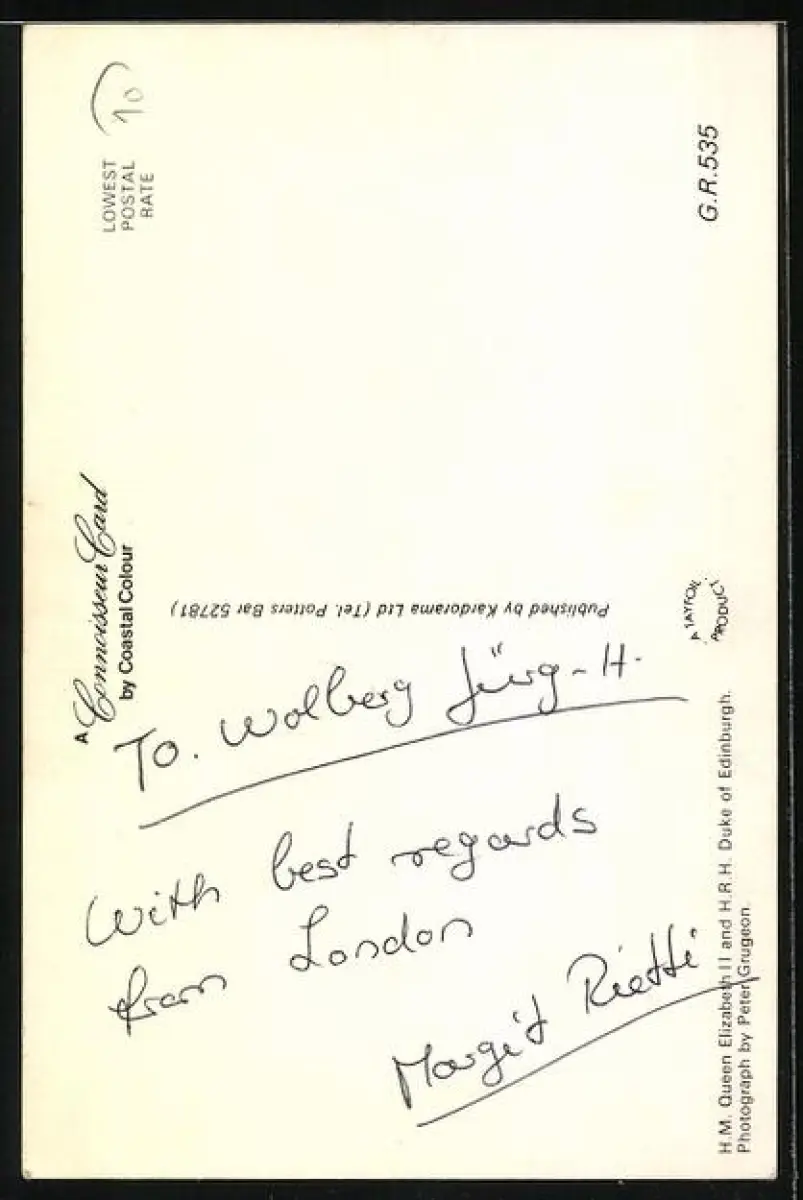 A Connoisseur Card
by Coastal Colour
LOWEST
POSTAL
RATE
10
Published by Kardorama Ltd (Tel. Potters Bar 52781)
To. Wolberg Jürg-H.
With best regards
from London
Margit Rietti
H.M. Queen Elizabeth II and H.R.H. Duke of Edinburgh.
Photograph by Peter Grugeon.
A TAYFOR
PRODUCT
G.R.535